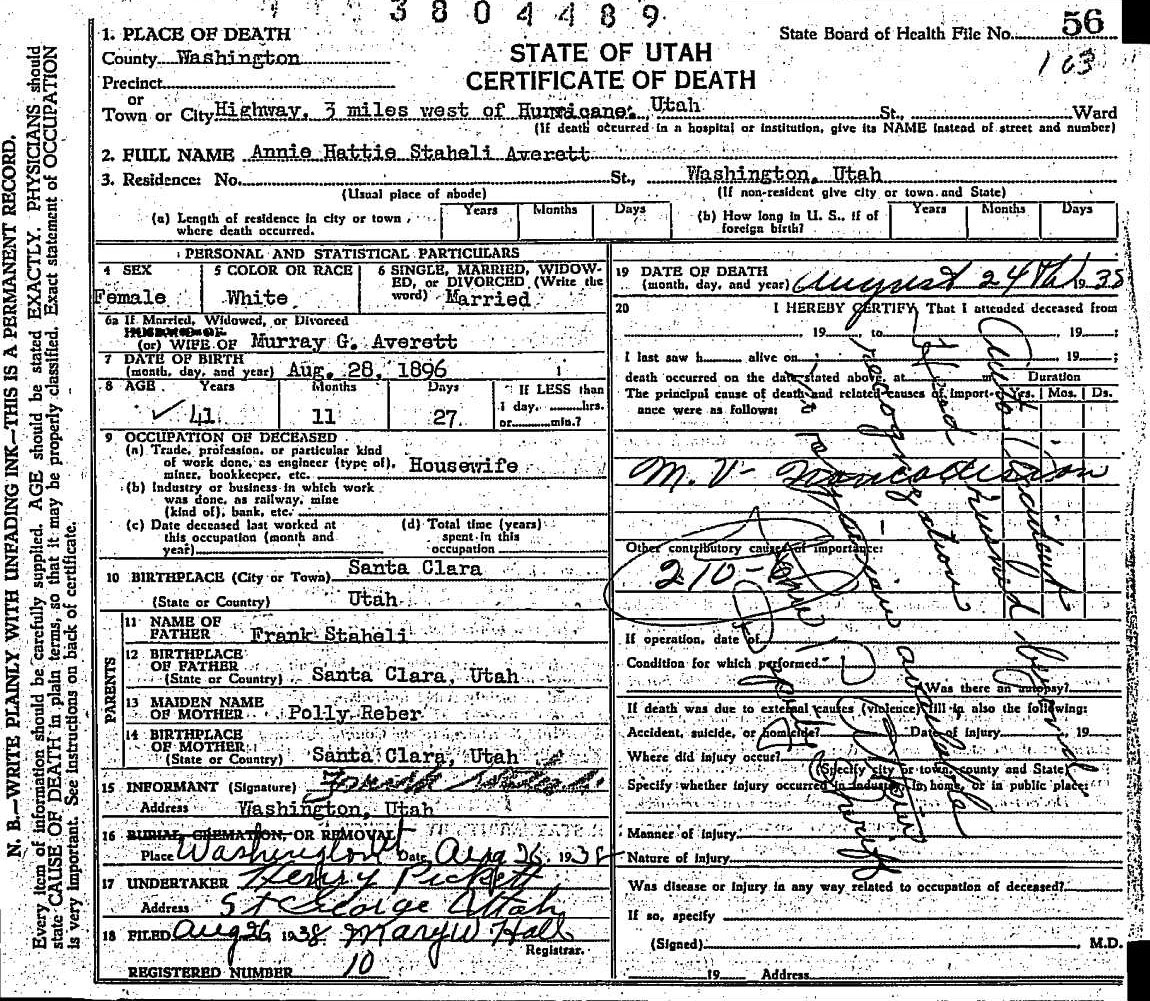 3804489
State Board of Health File No. 56
103
1. PLACE OF DEATH
STATE OF UTAH
CERTIFICATE OF DEATH
County Washington
Precinct
or
Town or City Highway, 3 miles west of Hurricane, Utah St., Ward
(If death occurred in a hospital or institution, give its NAME instead of street and number)
2. FULL NAME Annie Hattie Staheli Averett
3. Residence: No. St., Washington, Utah
(Usual place of abode) (If non-resident give city or town and State)
(a) Length of residence in city or town where death occurred. Years Months Days
(b) How long in U. S., if of foreign birth? Years Months Days
PERSONAL AND STATISTICAL PARTICULARS
4 SEX Female
5 COLOR OR RACE White
6 SINGLE, MARRIED, WIDOWED, or DIVORCED (Write the word) Married
6a If Married, Widowed, or Divorced
HUSBAND OF
(or) WIFE OF Murray G. Averett
7 DATE OF BIRTH
(month, day, and year) Aug. 28, 1896
8 AGE Years Months Days If LESS than
41 11 27 1 day, hrs.
or min.?
9 OCCUPATION OF DECEASED
(a) Trade, profession, or particular kind
of work done, as engineer (type of),
miner, bookkeeper, etc. Housewife
(b) Industry or business in which work
was done, as railway, mine
(kind of), bank, etc.
(c) Date deceased last worked at
this occupation (month and
year)
(d) Total time (years)
spent in this
occupation
10 BIRTHPLACE (City or Town) Santa Clara
(State or Country) Utah
PARENTS
11 NAME OF
FATHER Frank Staheli
12 BIRTHPLACE
OF FATHER
(State or Country) Santa Clara, Utah
13 MAIDEN NAME
OF MOTHER Polly Reber
14 BIRTHPLACE
OF MOTHER
(State or Country) Santa Clara, Utah
15 INFORMANT (Signature) Frank Staheli
Address Washington, Utah
16 BURIAL, CREMATION, OR REMOVAL
Place Washington Ut Date Aug 26, 1938
17 UNDERTAKER Henry Pickett
Address St George Utah
18 FILED Aug 26 1938 Mary W Hall
Registrar.
REGISTERED NUMBER 10
19 DATE OF DEATH
(month, day, and year) August 24th 1938
20 I HEREBY CERTIFY, That I attended deceased from
19 to 19 ;
I last saw h alive on 19 ;
death occurred on the date stated above, at m Duration
The principal cause of death and related causes of importance were as follows: Yrs. Mos. Ds.
M.V- Noncollision
Other contributory causes of importance:
210-
If operation, date of
Condition for which performed
Was there an autopsy?
If death was due to external causes (violence) fill in also the following:
Accident, suicide, or homicide? Date of injury 19
Where did injury occur?
(Specify city or town, county and State)
Specify whether injury occurred in industry, in home, or in public place:
Manner of injury
Nature of injury
Was disease or injury in any way related to occupation of deceased?
If so, specify
(Signed) M.D.
19 Address
Auto Accident
Head crushed beyond
recognition
no physician available
Deputy Sheriff
N. B.—WRITE PLAINLY WITH UNFADING INK—THIS IS A PERMANENT RECORD.
Every item of information should be carefully supplied. AGE should be stated EXACTLY. PHYSICIANS should
state CAUSE OF DEATH in plain terms, so that it may be properly classified. Exact statement of OCCUPATION
is very important. See instructions on back of certificate.